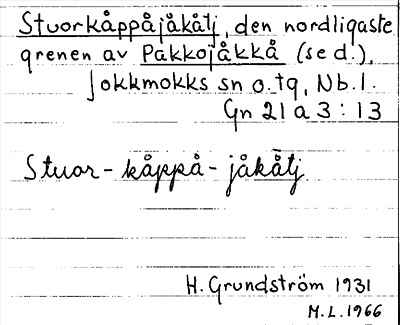 Stuorkåppåjåkåtj, den nordligaste
grenen av Pakkojåkkå (se d.),
Jokkmokks sn o. tg, Nb. l.
Gn 21 a 3 : 13
Stuor-kåppå-jåkåtj
H. Grundström 1931
M.L. 1966